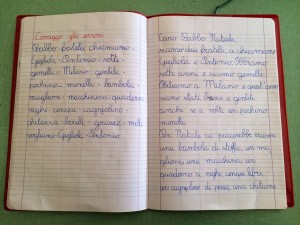 Correggo gli errori
Babbo - fratelli - chiamiamo -
Giuliola - Antonio - sette -
gemelli - Milano - gentili -
pochino - monelli - bambola -
maglione - macchinina - quaderno
righe - cinque - cagnolino -
chitarra - bacili - grazie - mille
vogliamo - Giuliola - Antonio
Caro Babbo Natale,
siamo due fratelli, ci chiamiamo
Giuliola e Antonio
sette anni e siamo gemelli.
Abitiamo a Milano e quest'anno
siamo stati buoni e gentili
anche se a volte un pochino
monelli.
Per Natale ci piacerebbe ricevere
una bambola di stoffa, un ma
glione, una macchina, un
quaderno a righe, cinque libri,
un cagnolino di peluche, una chitarra